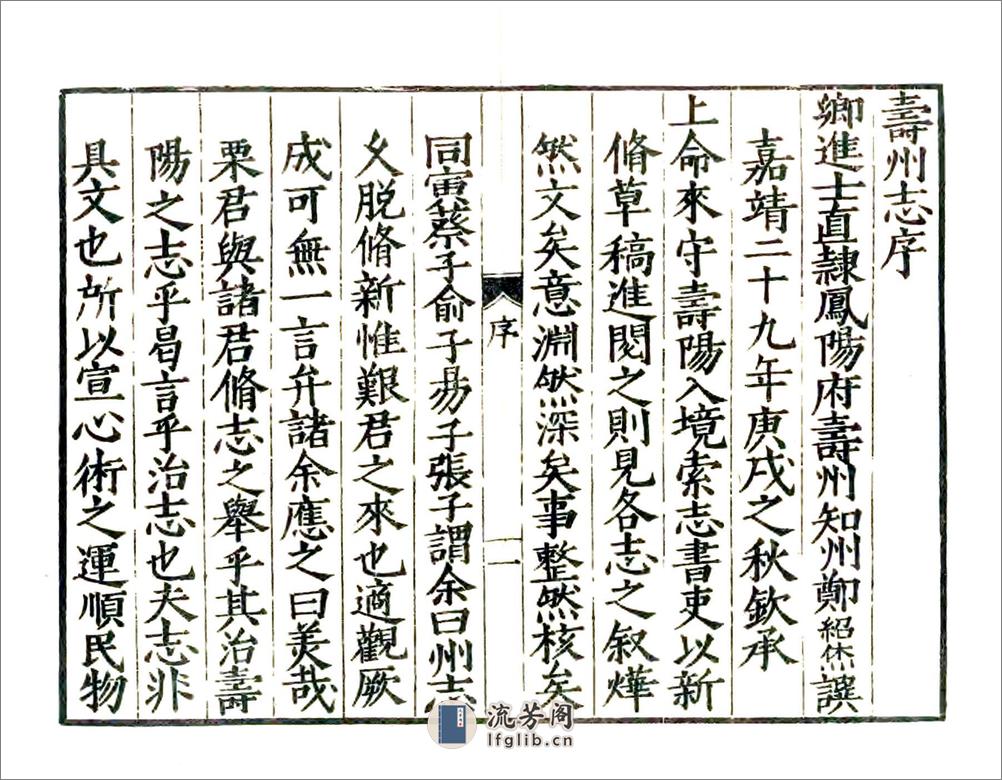 壽州志序
鄉進士直隸鳳陽府壽州知州鄭紹烋譔
嘉靖二十九年庚戌之秋欽承
上命來守壽陽入境索志書吏以新
脩草稿進閱之則見各志之叙燁
然文矣意淵然深矣事整然核矣
序
二
同寅蔡子俞子昜子張子謂余曰州志
久脫脩新惟艱君之來也適觀厥
成可無一言弁諸余應之曰美哉
栗君與諸君脩志之舉乎其治壽
陽之志乎曷言乎治志也夫志非
具文也所以宣心術之運順民物
流芳阁
lfglib.cn